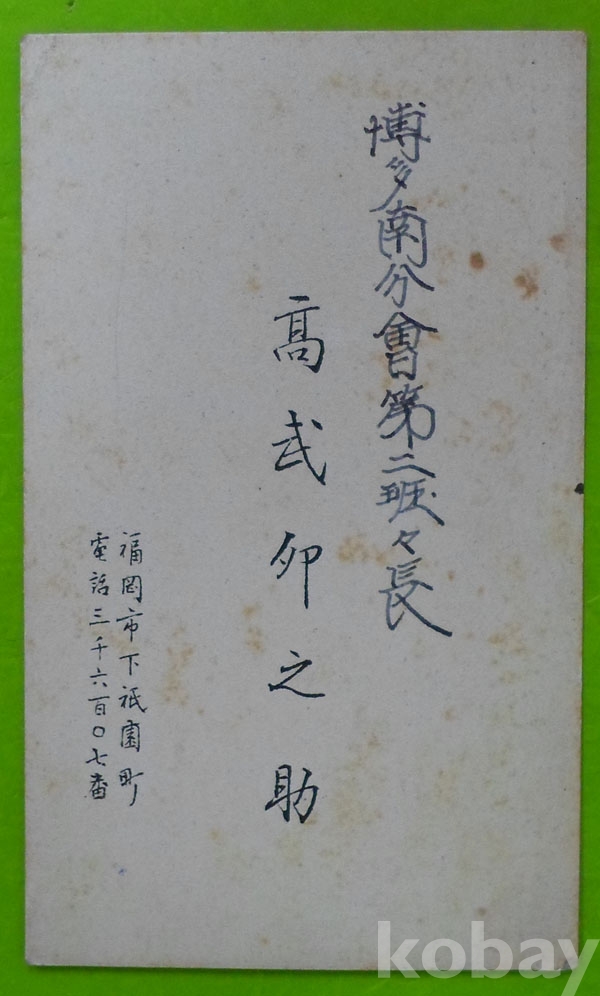 博多南分會第二班々長
髙武卯之助
福岡市下祇園町
電話三千六百〇七番
kobay